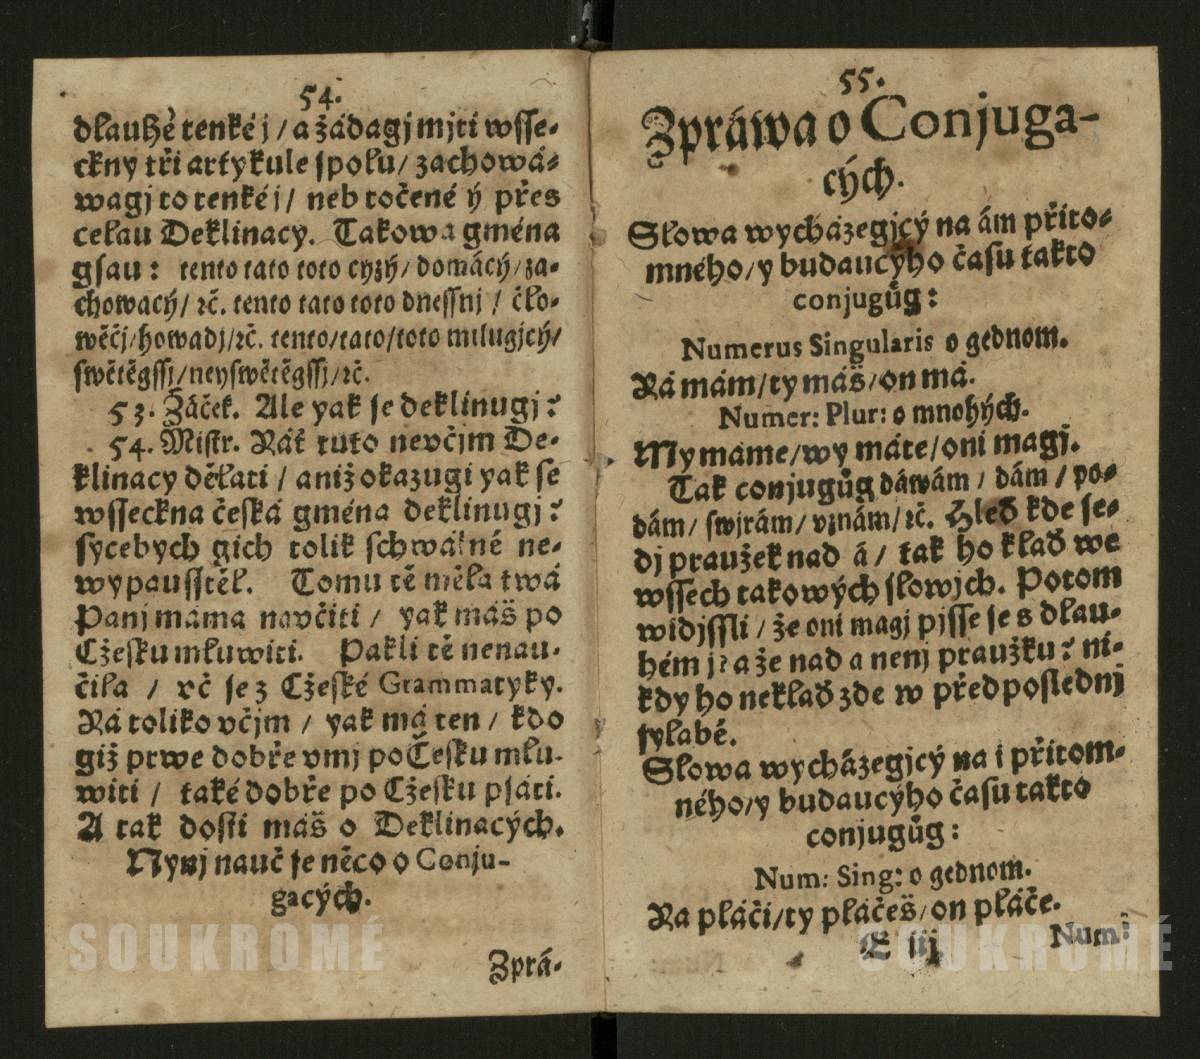 54.
dlauhé tenké j / a žádagj mjti wsse-
ckny tři artykule spolu / zachowá-
wagj to tenké j / neb točené ý přes
celau Deklinacy. Takowa gména
gsau: tento tato toto cyzý / domácý / za-
chowacý / ꝛč. tento tato toto dnessnj / člo-
wěčj / howadj / ꝛč. tento / tato / toto milugjcý /
swětěgssj / neyswětěgssj / ꝛč.
53. Žáček. Ale yak se deklinugj?
54. Mistr. Ráť tuto nevčjm De-
klinacy dělati / aniž okazugi yak se
wsseckna česká gména deklinugj?
sycebych gich tolik schwálně ne-
wypausstěl. Tomu tě měla twá
Panj máma navčiti / yak máš po
Cžesku mluwiti. Pakli tě nenau-
čila / vč se z Cžeské Grammatyky.
Rá toliko včjm / yak má ten / kdo
giž prwe dobře vmj po Česku mlu-
witi / také dobře po Cžesku psáti.
A tak dosti máš o Deklinacých.
Nynj nauč se něco o Conju-
gacých.
Zprá-
55.
Zpráwa o Conjuga-
cých.
Slowa wycházegjcý na ám příto-
mného / y budaucýho času takto
conjugůg:
Numerus Singularis o gednom.
Rá mám / ty máš / on má.
Numer: Plur: o mnohých.
My máme / wy máte / oni magj.
Tak conjugůg dáwám / dám / po-
dám / swjrám / vznám / ꝛč. Hleď kde se-
dj praužek nad á / tak ho klaď we
wssech takowých slowjch. Potom
widjssli / že oni magj pjsse se s dlau-
hém j? a že nad a nenj praužku? ni-
kdy ho neklaď zde w předposlednj
sylabě.
Slowa wycházegjcý na i přítom-
ného / y budaucýho času takto
conjugůg:
Num: Sing: o gednom.
Ra pláči / ty pláčeš / on pláče.
E iij
Num:
SOUKROMÉ
SOUKROMÉ